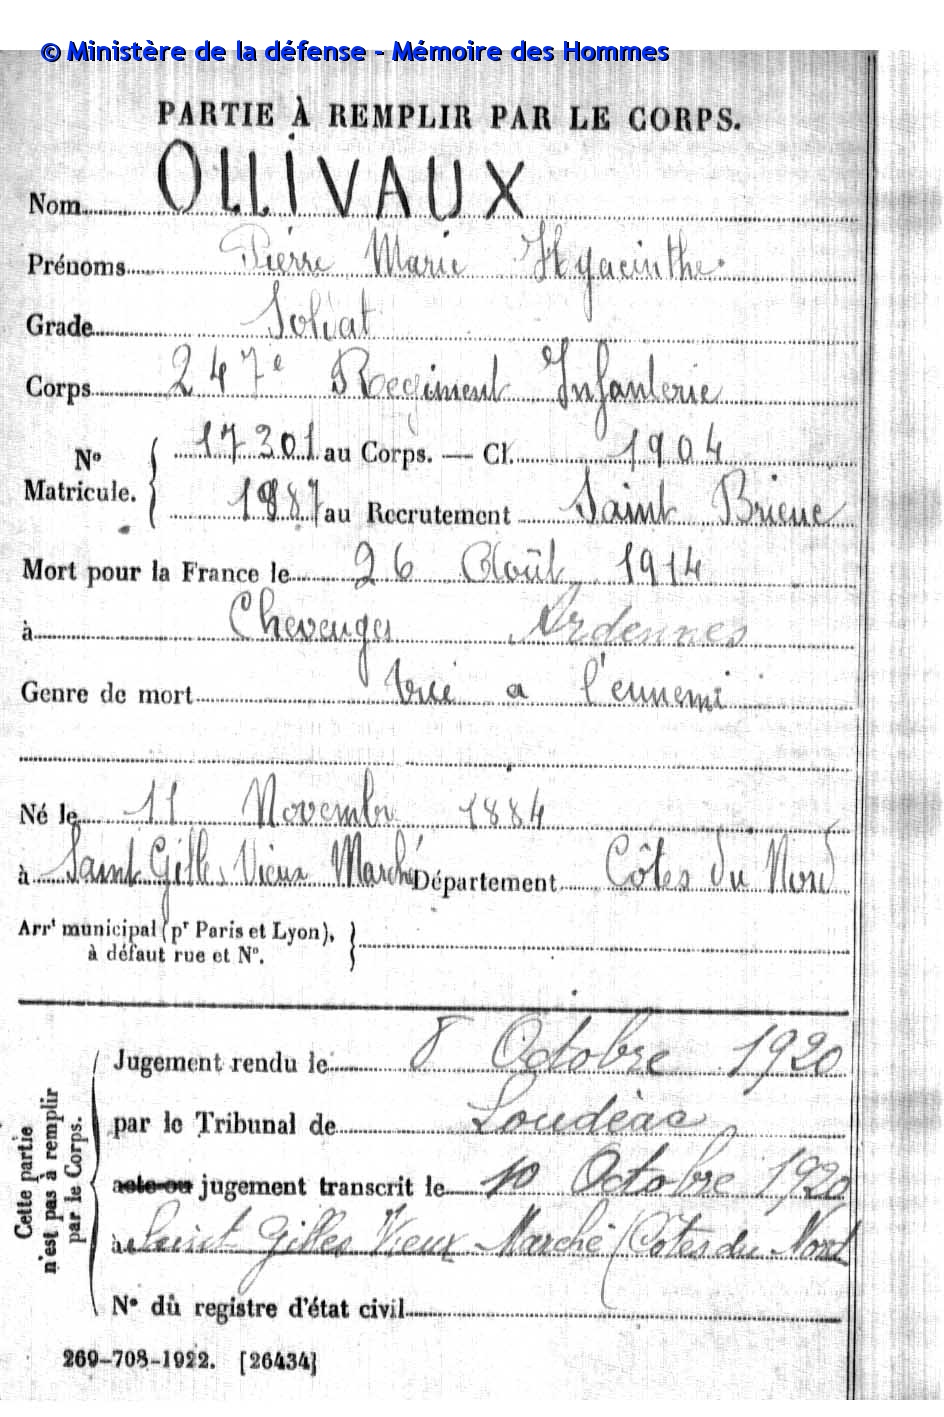 © Ministère de la défense - Mémoire des Hommes
PARTIE À REMPLIR PAR LE CORPS.
Nom OLLIVAUX
Prénoms Pierre Marie Hyacinthe
Grade Soldat
Corps 247e Régiment Infanterie
No Matricule. { 17301 au Corps. — Cl. 1904
1987 au Recrutement Saint Brieuc
Mort pour la France le 26 Août 1914
à Cheveuges Ardennes
Genre de mort tué a l'ennemi
Né le 11 Novembre 1884
à Saint Gilles Vieux Marché Département Côtes du Nord
Arrt municipal (pr Paris et Lyon),
à défaut rue et No.
Cette partie n'est pas à remplir par le Corps.
Jugement rendu le 8 Octobre 1920
par le Tribunal de Loudéac
acte ou jugement transcrit le 10 Octobre 1920
à Saint Gilles Vieux Marché (Côtes du Nord
No du registre d'état civil
269-708-1922. [26434]